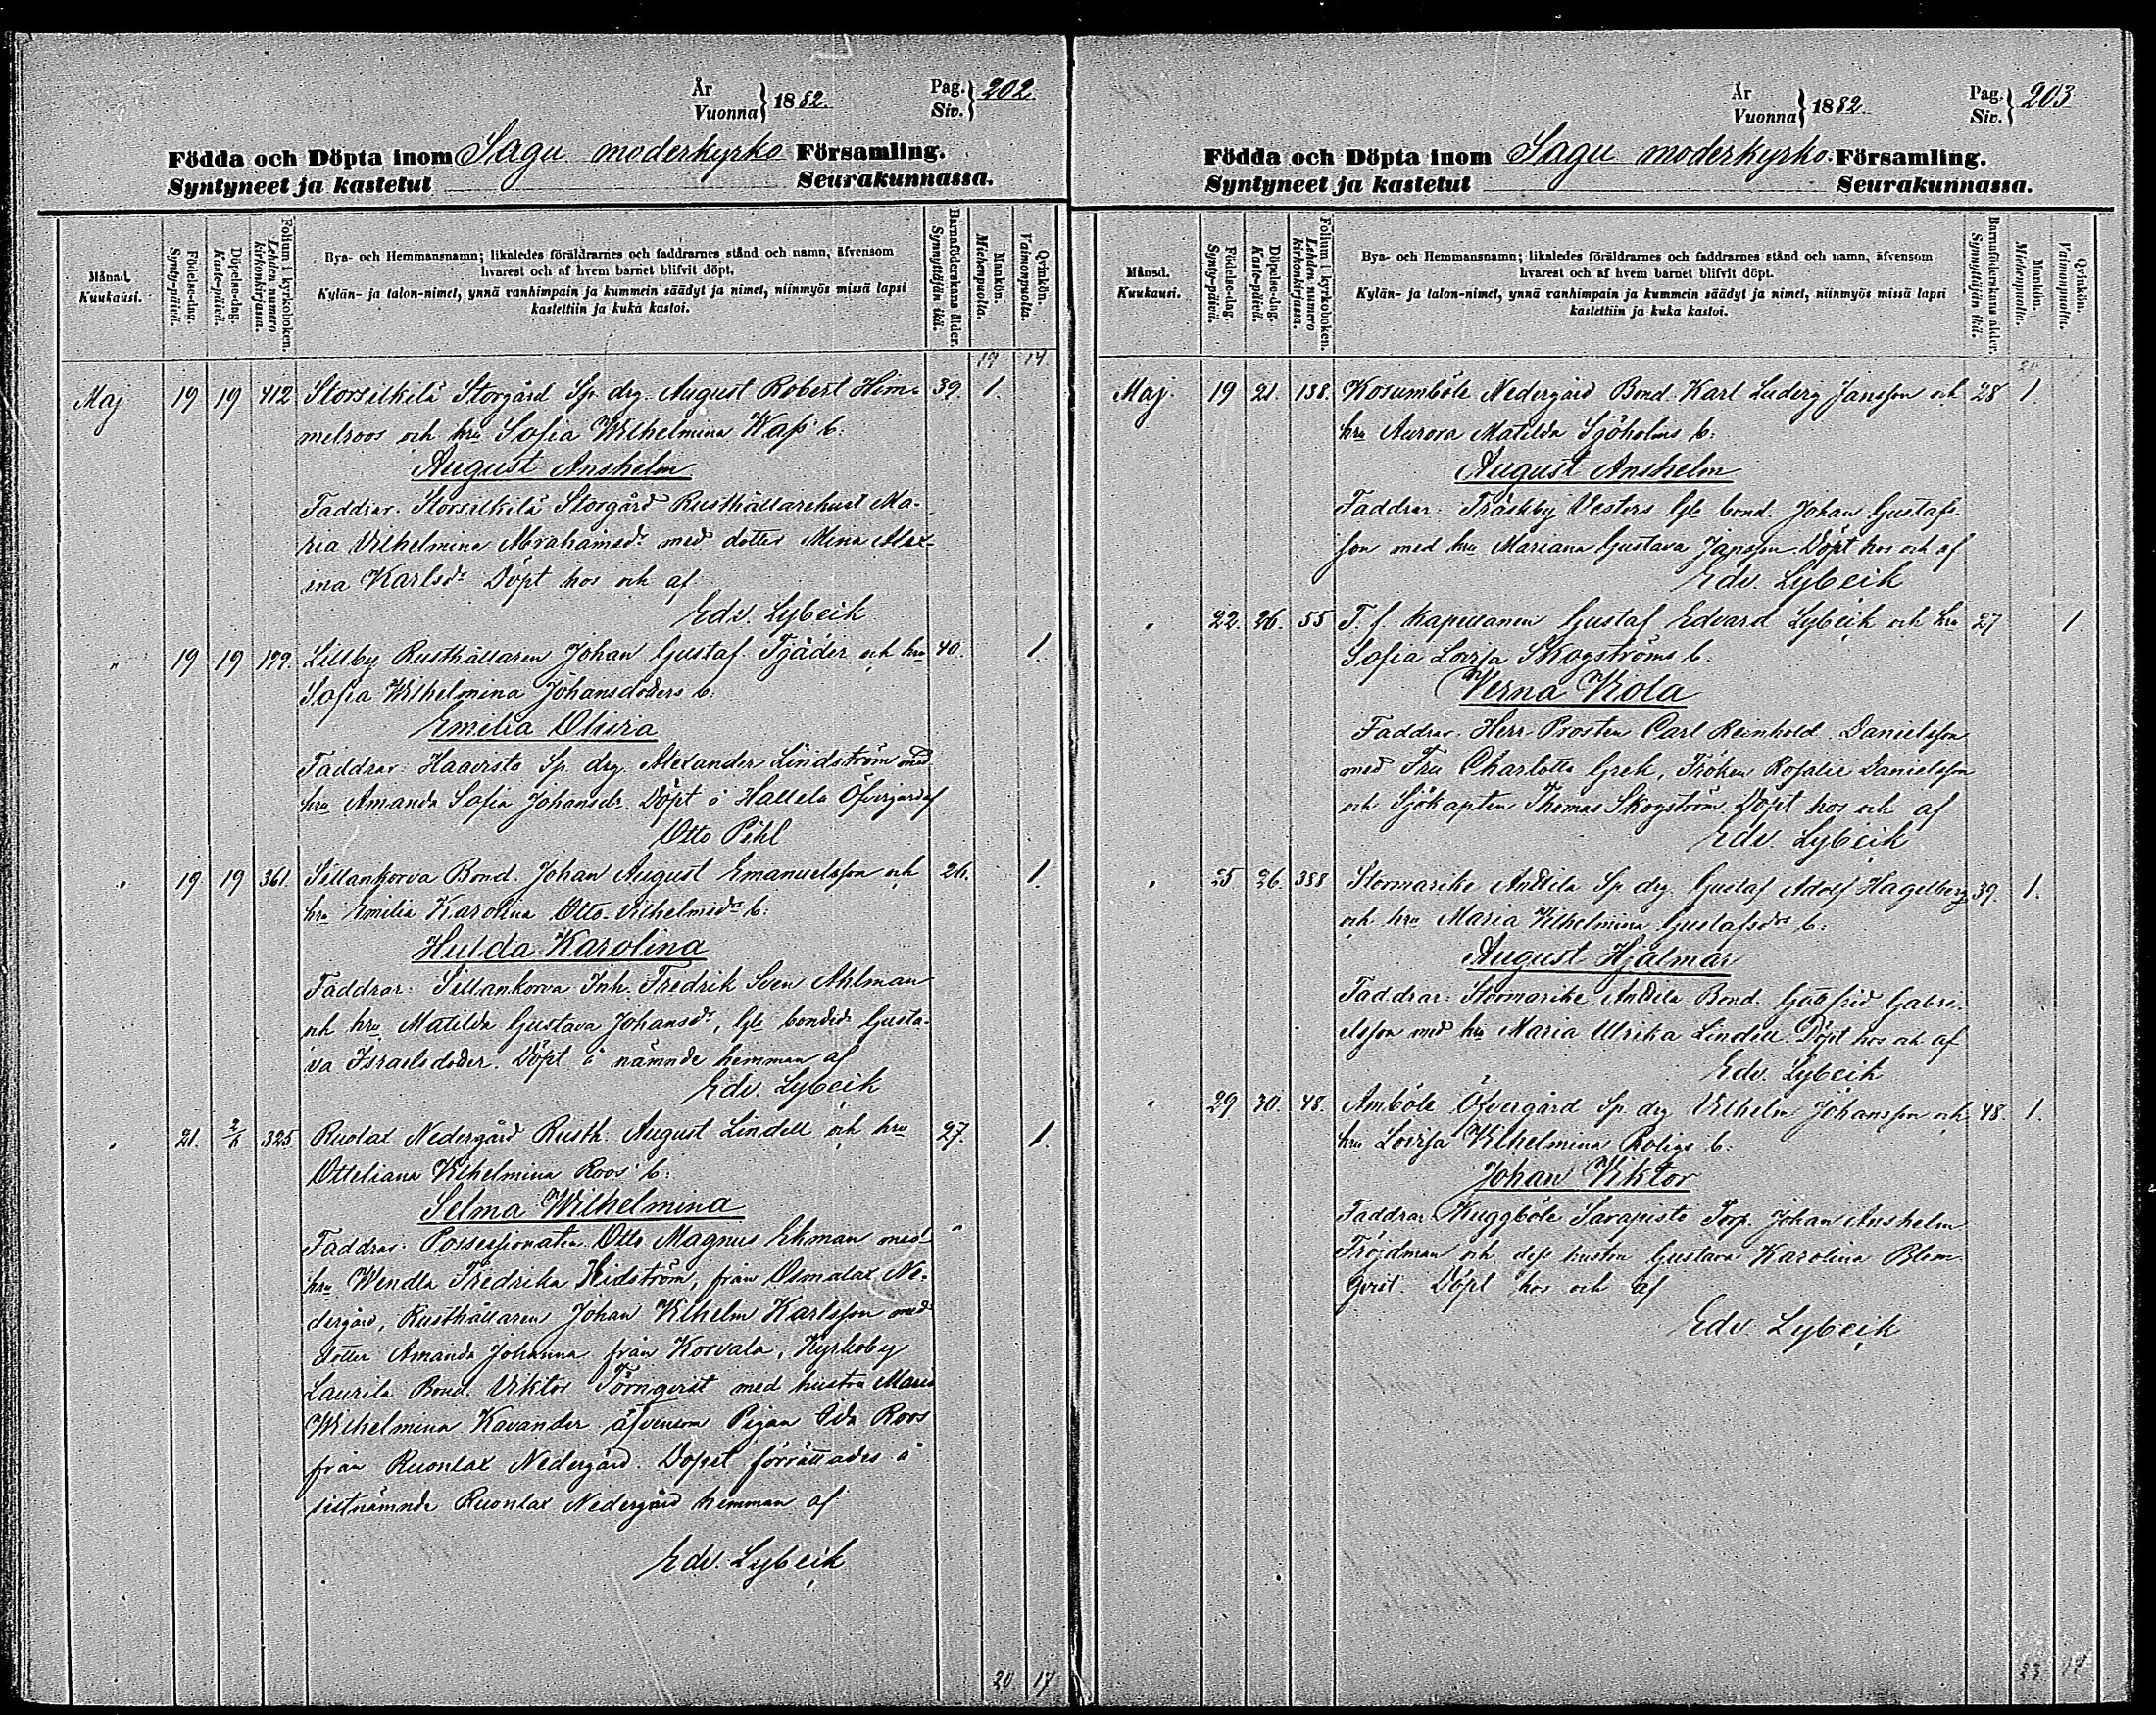 År
Vuonna } 1882.
Pag.
Siv. } 202.
Födda och Döpta inom Sagu moderkyrko Församling.
Syntyneet ja kastetut Seurakunnassa.
Månad.
Kuukausi.
Födelse-dag.
Synty-päivä.
Döpelse-dag.
Kaste-päivä.
Folium i kyrkoboken.
Lehden numero
kirkonkirjassa.
Bya- och Hemmansnamn; likaledes föräldrarnes och faddrarnes stånd och namn, äfvensom
hvarest och af hvem barnet blifvit döpt.
Kylän- ja talon-nimet, ynnä vanhimpain ja kummein säädyt ja nimet, niinmyös missä lapsi
kastettiin ja kuka kastoi.
Barnaföderskans ålder.
Synnyttäjän ikä.
Mankön.
Miehenpuolia.
Qvinkön.
Vaimonpuolia.
19 14.
Maj 19 19 412 Storsilkilä Storgård Sp. drg. August Robert Him- 39. 1.
melroos och hru Sofia Wilhelmina Wass b:
August Anshelm
Faddrar. Storsilkilä Storgård Rusthållarehust Ma-
ria Vilhelmina Abrahamsdr med dotter Mina Alex-
ina Karlsdr Döpt hos och af
Edv. Lybeck
" 19 19 199. Lillby Rusthållaren Johan Gustaf Tjäder och hru 40. 1.
Sofia Wilhelmina Johansdoters b.
Emilia Olivia
Faddrar: Haavisto Sp. drg. Alexander Lindström med
hru Amanda Sofia Johansdr. Döpt å Hallela Öfvergård af
Otto Pihl
" 19. 19 361. Sillankorva Bond. Johan August Emanuelsson och 26. 1.
hru Emilia Karolina Otto-Vilhelmsdrs b:
Hulda Karolina
Faddrar: Sillankorva Inh. Fredrik Sven Ahlman
och hru Matilda Gustava Johansdr, Gfl. bondedr Gusta-
va Israelsdoter. Döpt å nämnde hemman af
Edv. Lybeck
" 21. 2/6 325 Ruolax Nedergård Rusth. August Lindell och hru 27. 1.
Otteliana Wilhelmina Roos' b:
Selma Wilhelmina
Faddrar: Possessionaten Otto Magnus Ekman med
hru Wendla Fredrika Hidström, från Osmalax Ne-
dergård, Rusthållaren Johan Vilhelm Karlsson med
dotter Amanda Johanna från Korvala, Kyrkoby
Laurila Bond. Viktor Törnqvist med hustru Maria
Wilhelmina Kavander äfvensom Pigan Ida Roos
från Ruonlax Nedergård. Dopet förrättades å
sistnämnde Ruonlax Nedergård hemman af
Edv. Lybeck
20 17
År
Vuonna } 1882
Pag.
Siv. } 203
Födda och Döpta inom Sagu moderkyrko Församling.
Syntyneet ja kastetut Seurakunnassa.
Månad.
Kuukausi.
Födelse-dag.
Synty-päivä.
Döpelse-dag.
Kaste-päivä.
Folium i kyrkoboken.
Lehden numero
kirkonkirjassa.
Bya- och Hemmansnamn; likaledes föräldrarnes och faddrarnes stånd och namn, äfvensom
hvarest och af hvem barnet blifvit döpt.
Kylän- ja talon-nimet, ynnä vanhimpain ja kummein säädyt ja nimet, niinmyös missä lapsi
kastettiin ja kuka kastoi.
Barnaföderskans ålder.
Synnyttäjän ikä.
Mankön.
Miehenpuolia.
Qvinkön.
Vaimonpuolia.
20 17
Maj. 19 21. 138. Kosumböle Nedergård Bond. Karl Ludvig Jansson och 28 1.
hru Aurora Matilda Sjöholms b:
August Anshelm
Faddrar: Träskby Vesters Gfl. bond. Johan Gustafs-
son med hru Mariana Gustava Jansson. Döpt hos och af
Edv. Lybeck
" 22. 26. 55 T. f. Kapellanen Gustaf Edvard Lybeck och hru 27 1.
Sofia Lovisa Skogströms b.
Verna Viola
Faddrar. Herr Prosten Carl Reinhold Danielsson
med Fru Charlotta Grek, Fröken Rosalie Danielsson
och Sjökapten Thomas Skogström. Döpt hos och af
Edv. Lybeck
" 25 26. 388 Stormarike Anttila Sp. drg. Gustaf Adolf Hagelberg 39. 1.
och hru Maria Wilhelmina Gustafsdrs b:
August Hjalmar
Faddrar: Stormarike Anttila Bond. Gottfrid Gabri-
elsson med hru Maria Ulrika Lindell. Döpt hos och af
Edv. Lybeck
" 29 30. 48. Amböle Öfvergård Sp. drg. Vilhelm Johansson och 48. 1.
hru Lovisa Wilhelmina Roligs b:
Johan Viktor
Faddrar. Kuggböle Sarapisto Torp. Johan Anshelm
Fröjdman och dess hustru Gustava Karolina Blom-
qvist. Döpt hos och af
Edv. Lybeck
23 18